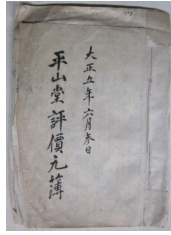 大正五年六月参日
平山堂評價元簿